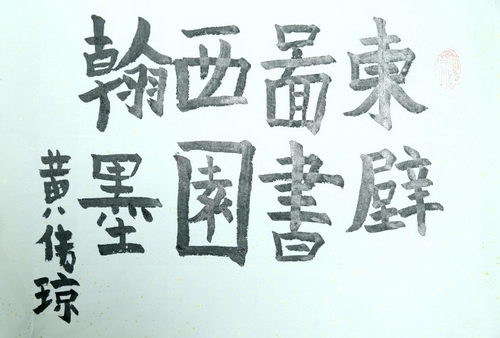 東壁
啚書
西園
翰墨
黄倩琼